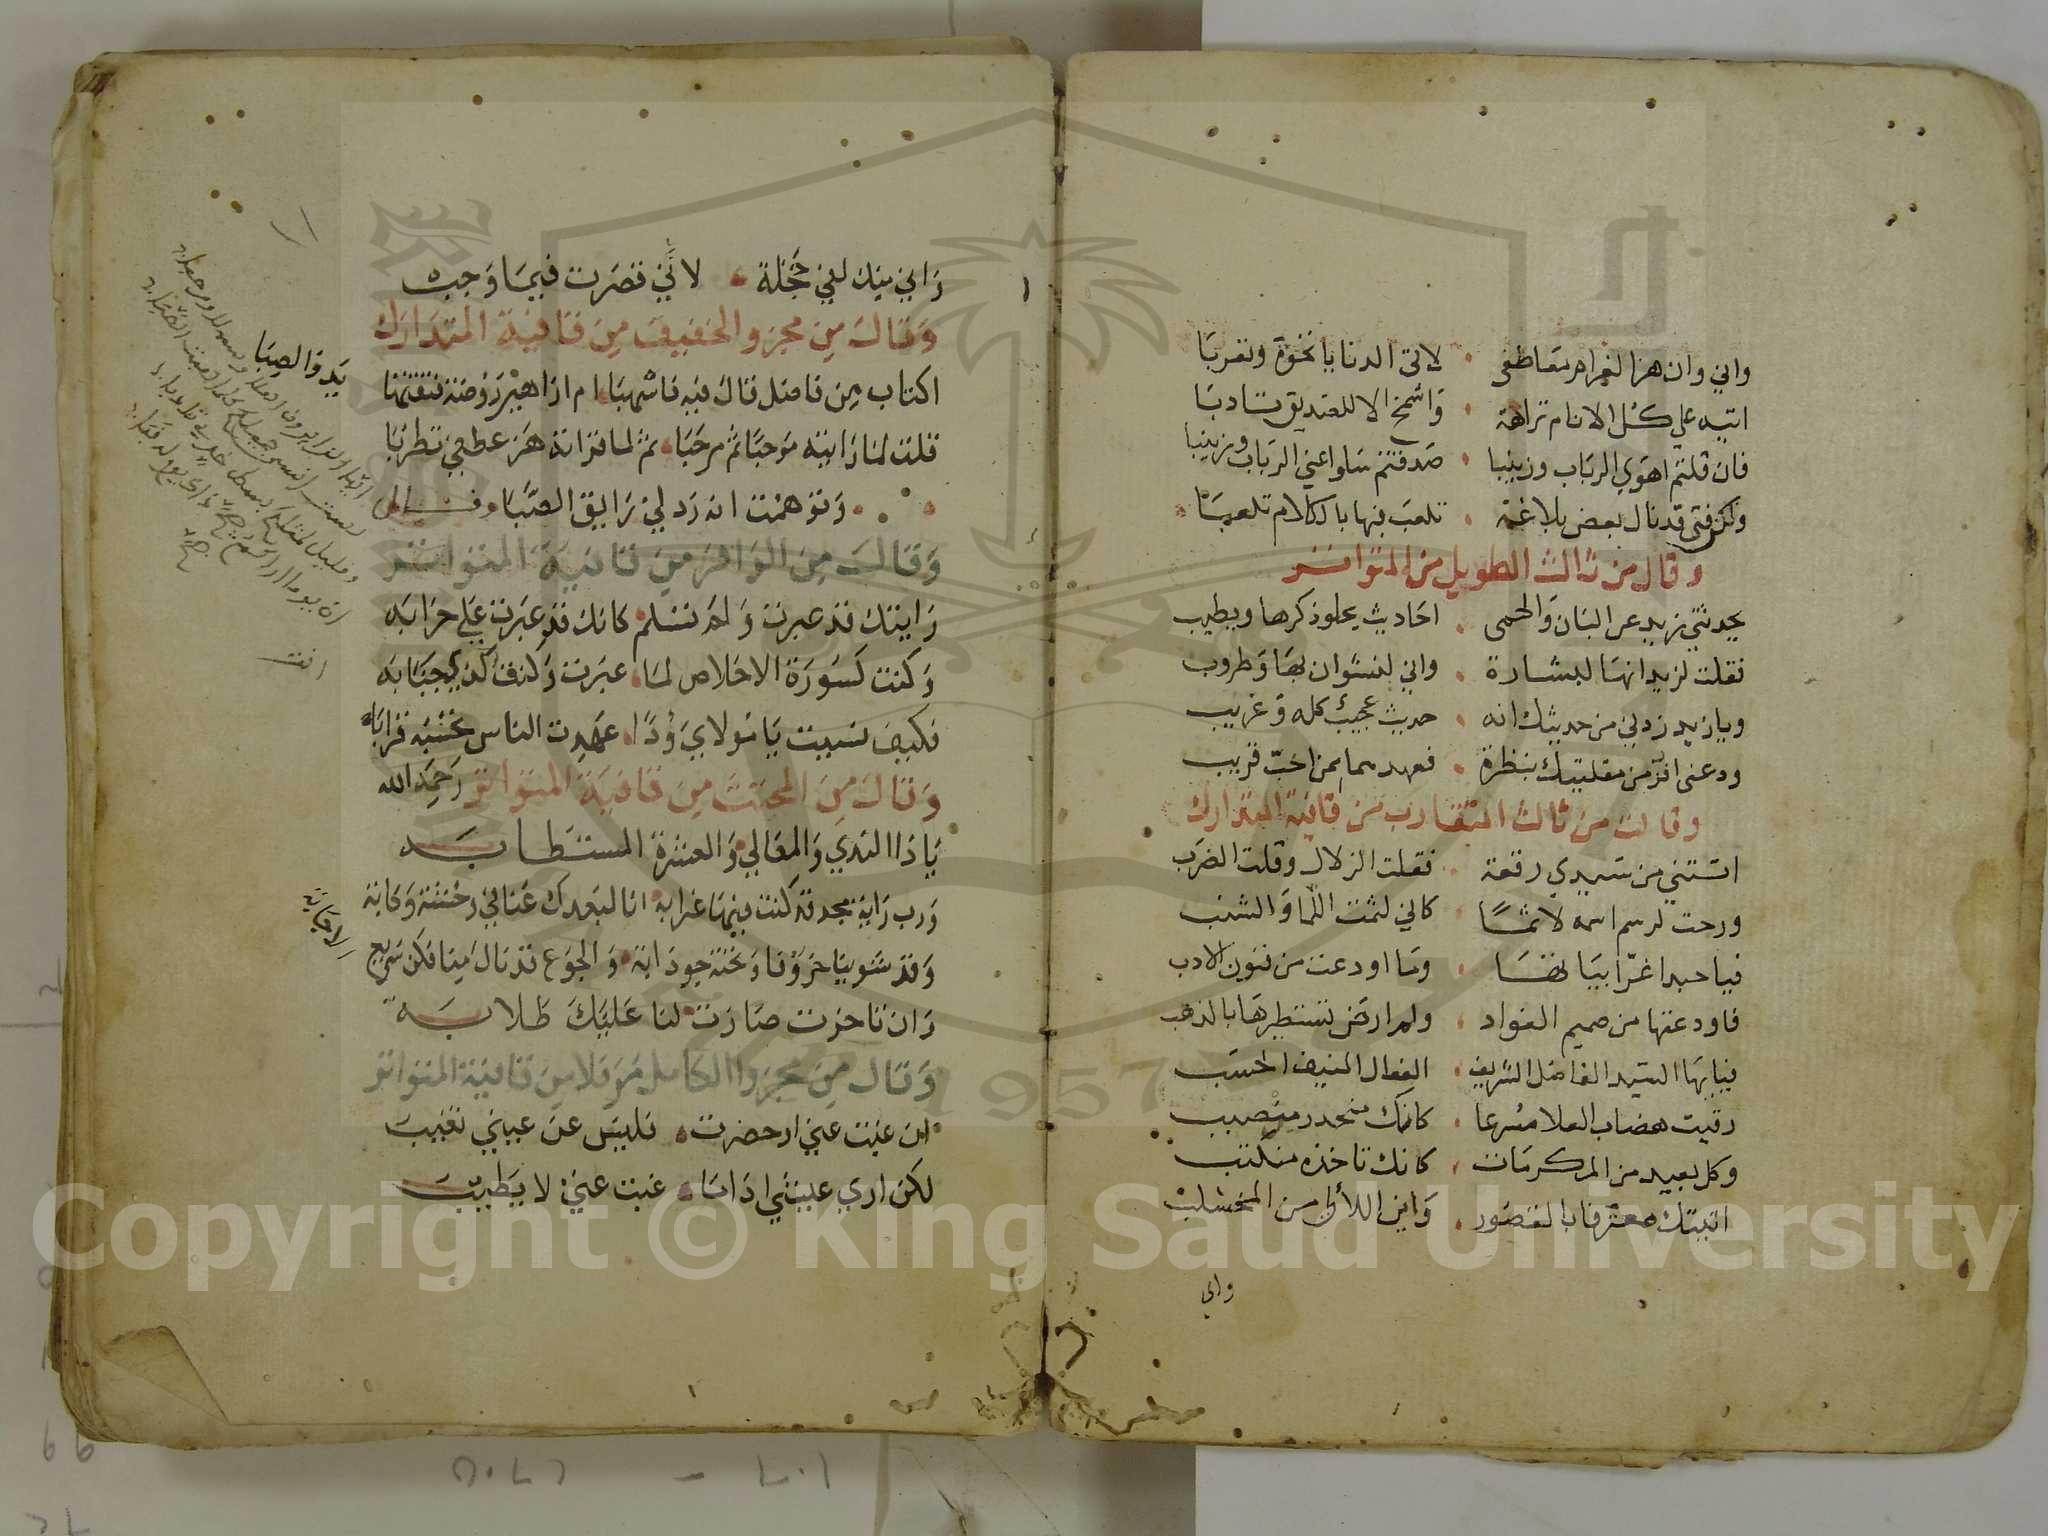 واني وان هز الغرام معاطفى لآتى الدنايا نخوة وتعربا
اتيه على كل الانام نزاهة واشمخ الا للصديق تادبا
فان قلتم اهوي الرباب وزينبا صدقتم سلوا عني الرباب وزينبا
ولكن فتى قد نال بعض بلاغة تلعب فيها بالكلام تلعبا
وقال من ثالث الطويل من المتواتر
يحدثني زيد عن البان والحمى احاديث يحلو ذكرها ويطيب
فقلت لزيد انها لبشارة واني لنشوان بها وطروب
ويا زيد زدني من حديثك انه حديث عجيب كله وغريب
ودعنى افز من مقلتيك بنظرة فعهدهما بمن احب قريب
وقال من ثالث المتقارب من قافية المتدارك
اتتني من سيدي رقعة فقلت الزلال وقلت الضرب
ورحت لرسم اسمه لاثما كاني لثمت اللما والشنب
فيا حبدا غرا بياتها وما اودعت من فنون الادب
فاودعتها من صميم الفواد ولم ارض تستطيرها بالذهب
فيايها السيد الفاضل الشريف الفعال المنيف الحسب
رقيت هضاب العلا مسرعا كانك منحدر من صبب
وكل بعيد من المكرمات كانك تاخذه من كثب
اتيتك معترفا بالقصور واين اللآلى من المخشلب
واني
واني منك لفي خجلة لانني قصرت فيما وجب
وقال من مجزو الخفيف من قافية المتدارك
اكتاب من فاضل قال فيه فاسهبا ام ازاهير روضة فتقتها
يد والصبا
قلت لما رايته مرحبا ثم مرحبا ثم لما قراته هز عطفي تطربا
وتوهمت انه رد لي رايق الصبا وقال
وقال من الوافر من قافية المتواتر
رايتك قد عبرت ولم تسلم كانك قد عبرت على خرابه
وكنت كسورة الاخلاص لما عبرت وكنت كذي جنابه
فكيف نسيت يا مولاي ودا عهدت الناس تحسبه قرابه
وقال من المجتث من قافية المتواتر رحمه الله
يا ذا الندي والمعالي والعشرة المستطابه
ورب راية مجد قد كنت فيها عرابه انا لبعدك عنا في وحشة وكابه
وقد شوينا خروفا وتحته جوذابه والجوع قد نال منا فكن سريع
الاجابة
وان تاخرت صارت لنا عليك طلابه
وقال من مجزو الكامل مرفلا من قافية المتواتر
ان غبت عني او حضرت فليس عن عيني تغيب
لكن اري عيشي اذا ما غبت عني لا يطيب
انت
Copyright © King Saud University
1957